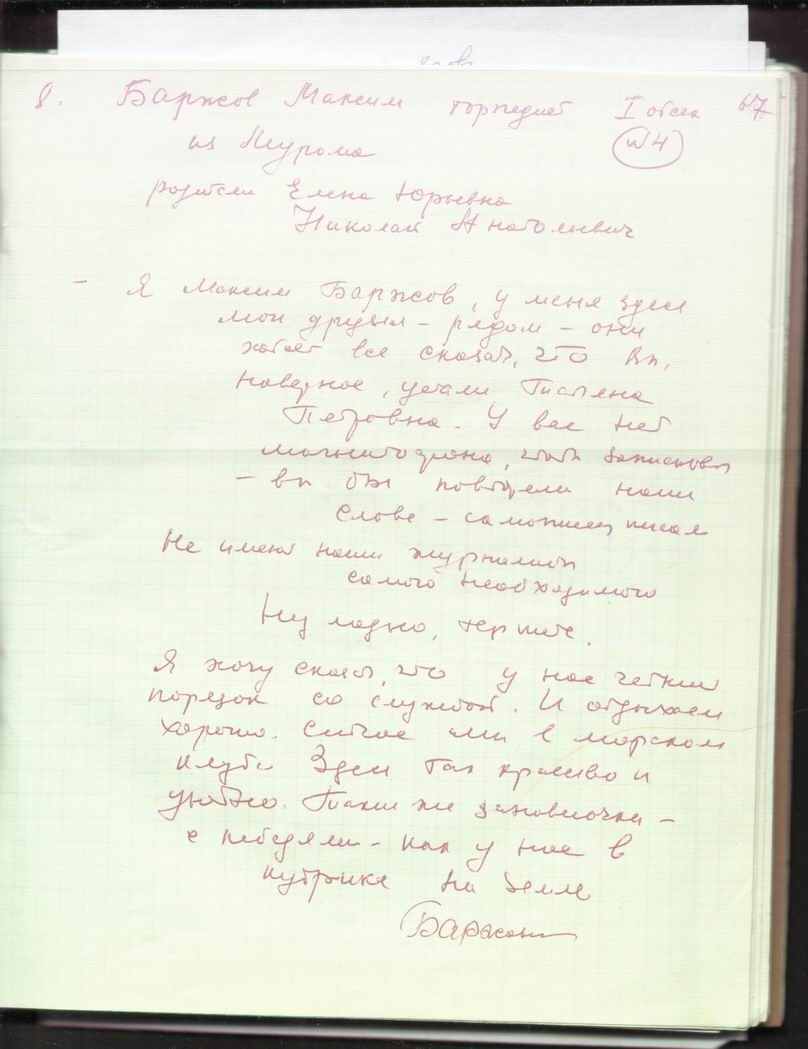 8. Баржов Максим торпедист I отсек 67
из Мурома N4
родители Елена Юрьевна
Николай Анатольевич
- Я Максим Баржов, у меня здесь
мои друзья - рядом - они
хотят все сказать, что Вы,
наверное, устали Татьяна
Петровна. У вас нет
магнитофона, чтоб записывать
- вы бы повторяли наши
слова - самописец писал
Не имеют наши журналисты
самого необходимого
Ну ладно, терпите.
Я хочу сказать, что у нас четкий
порядок со службой. И отдыхаем
хорошо. Сейчас мы в морском
клубе Здесь так красиво и
уютно. Такие же занавесочки -
с - как у нас в
кубрике на земле